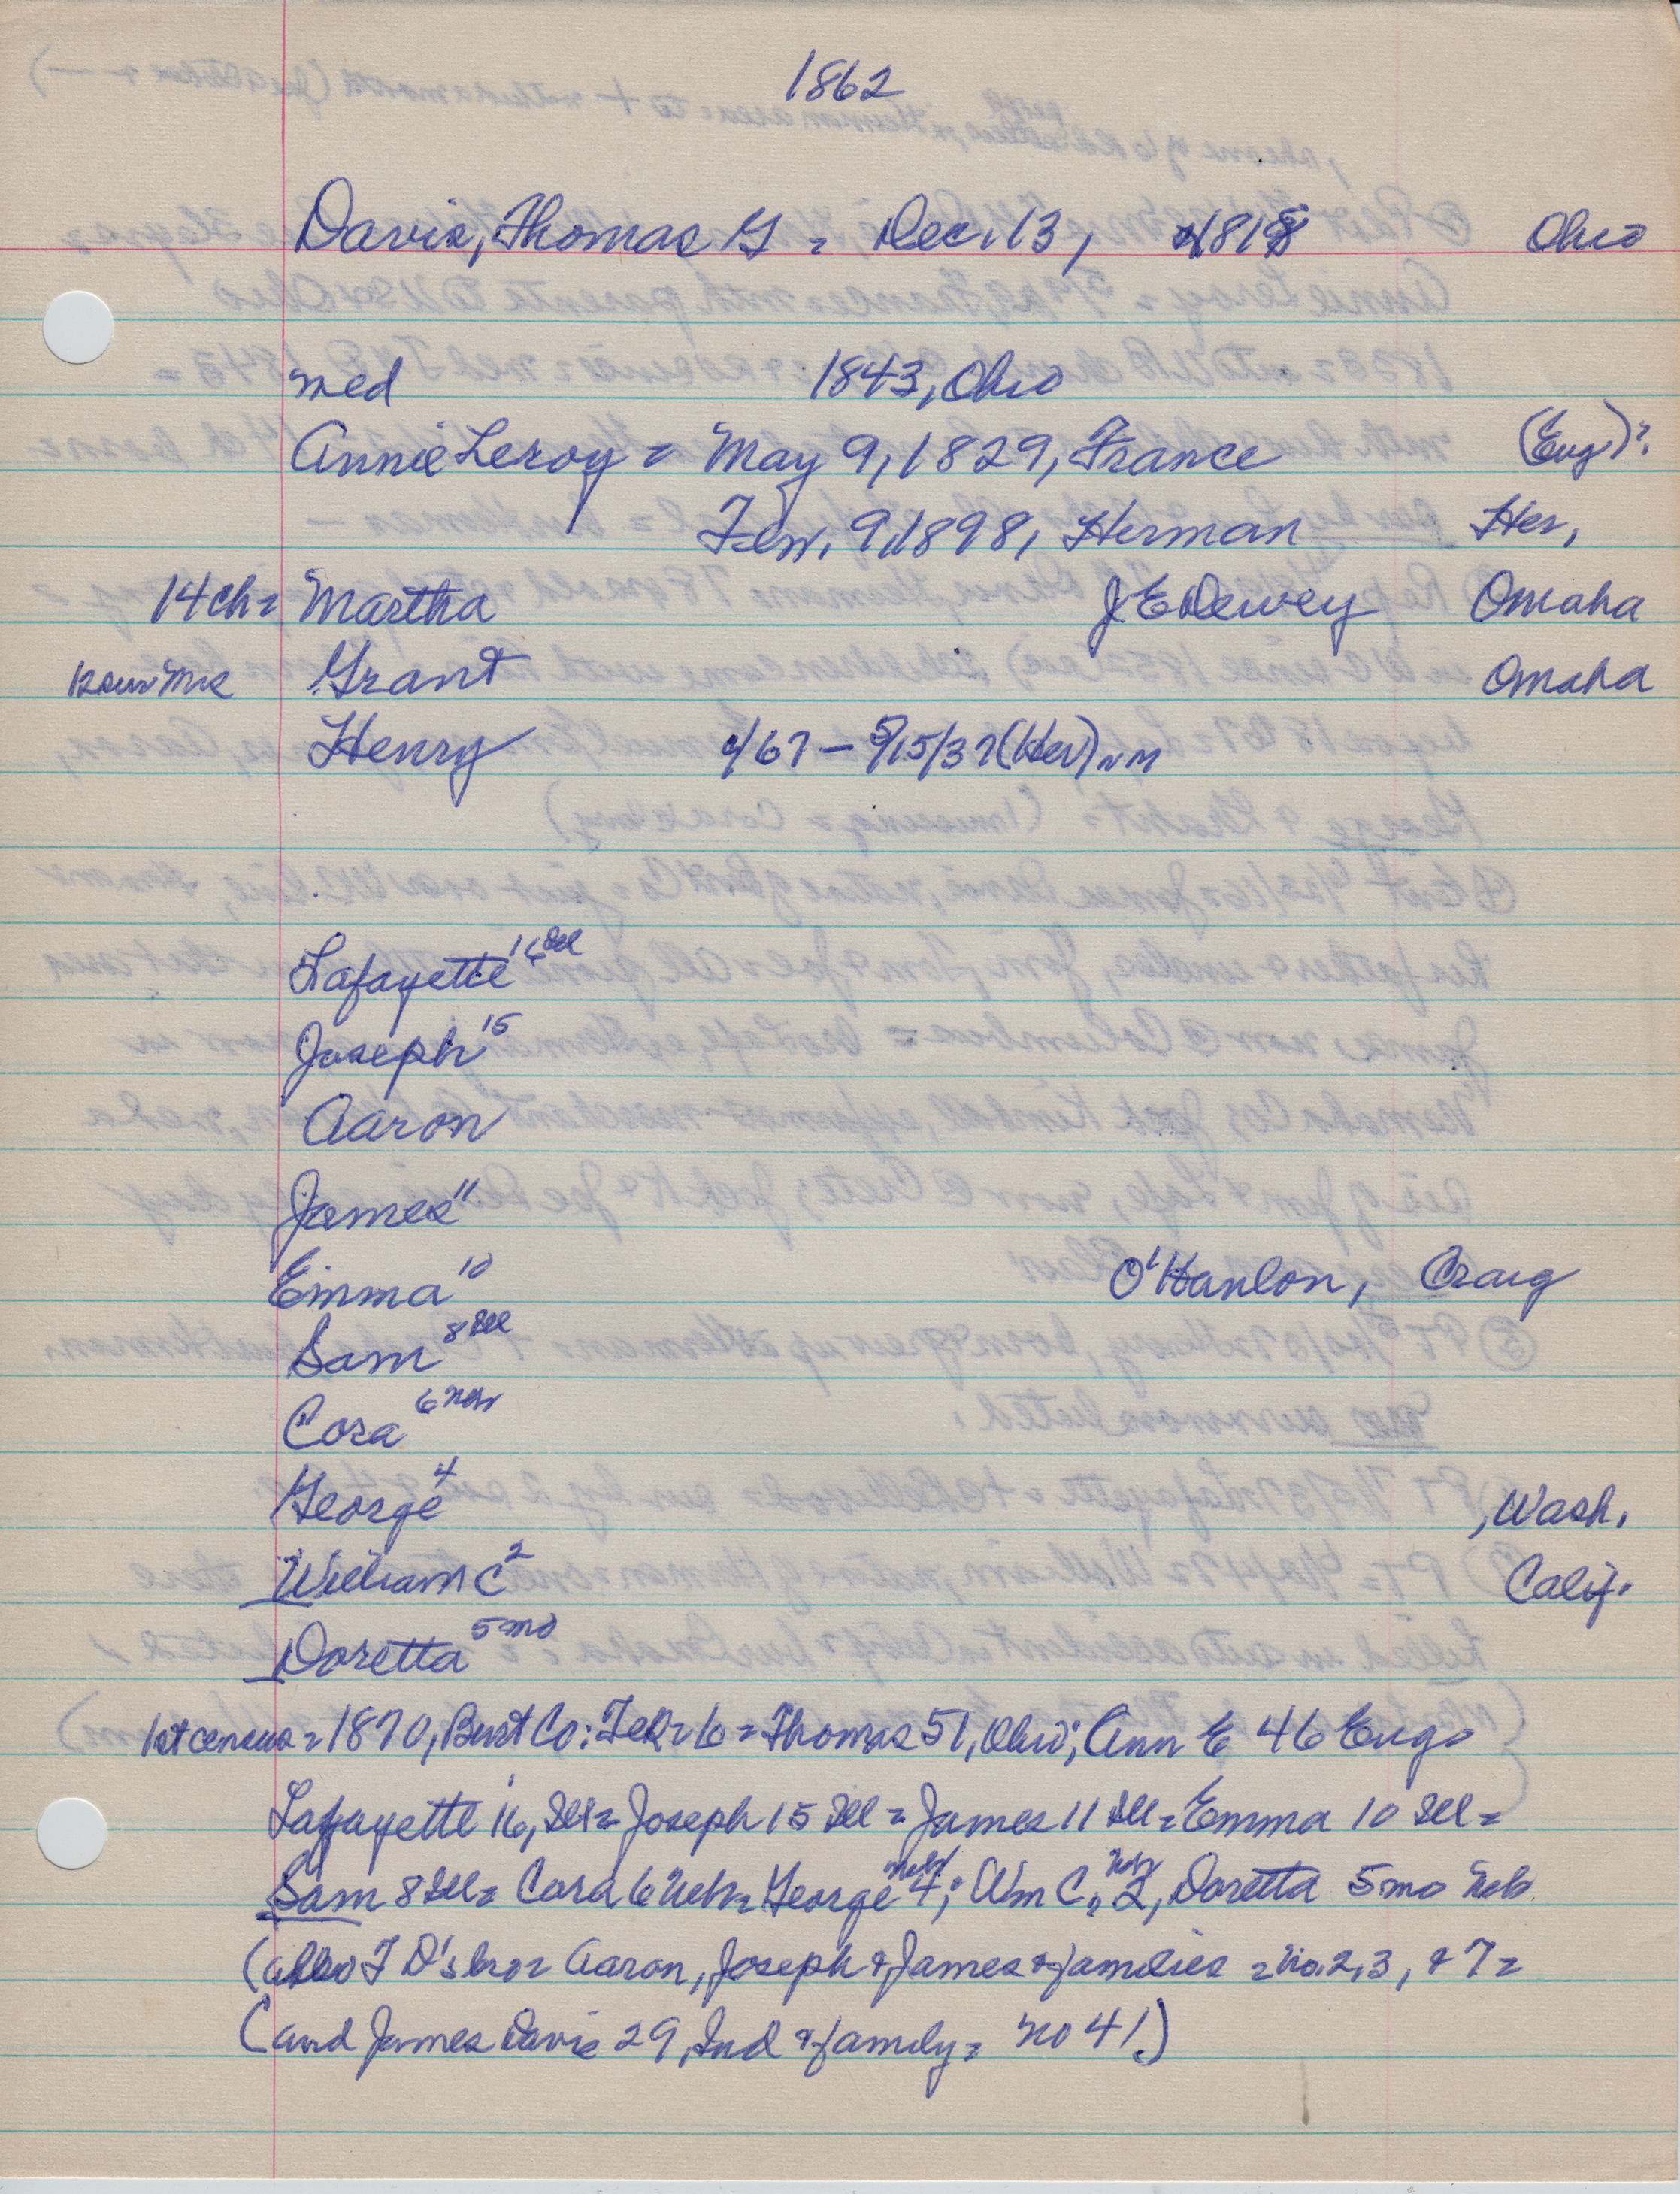 1862
Davis, Thomas G = Dec. 13, 1818 Ohio
med 1843, Ohio
Annie Leroy = May 9, 1829, France (Eng)?
Feb. 9, 1898, Herman Her,
14 ch = Martha J E Dewey Omaha
Grant Omaha
Henry c/67 – 5/15/37 (Her) n m
Lafayette 16 Ill
Joseph 15
Aaron
James 11
Emma 10 O'Hanlon, Craig
Sam 8 Ill
Cora 6 Neb
George 4 , Wash.
William C 2 Calif.
Doretta 5 mo
1st census = 1870, Burt Co: Feb = 6 = Thomas 51, Ohio; Ann E 46 Eng =
Lafayette 16, Ill = Joseph 15 Ill = James 11 Ill = Emma 10 Ill =
Sam 8 Ill = Cora 6 Neb = George 4 Neb; Wm C, 2 Neb, Doretta 5 mo Neb
(also T D's bro = Aaron, Joseph & James & families = No. 2, 3, & 7 =
(and James Davis 29, Ind & family = No 41)